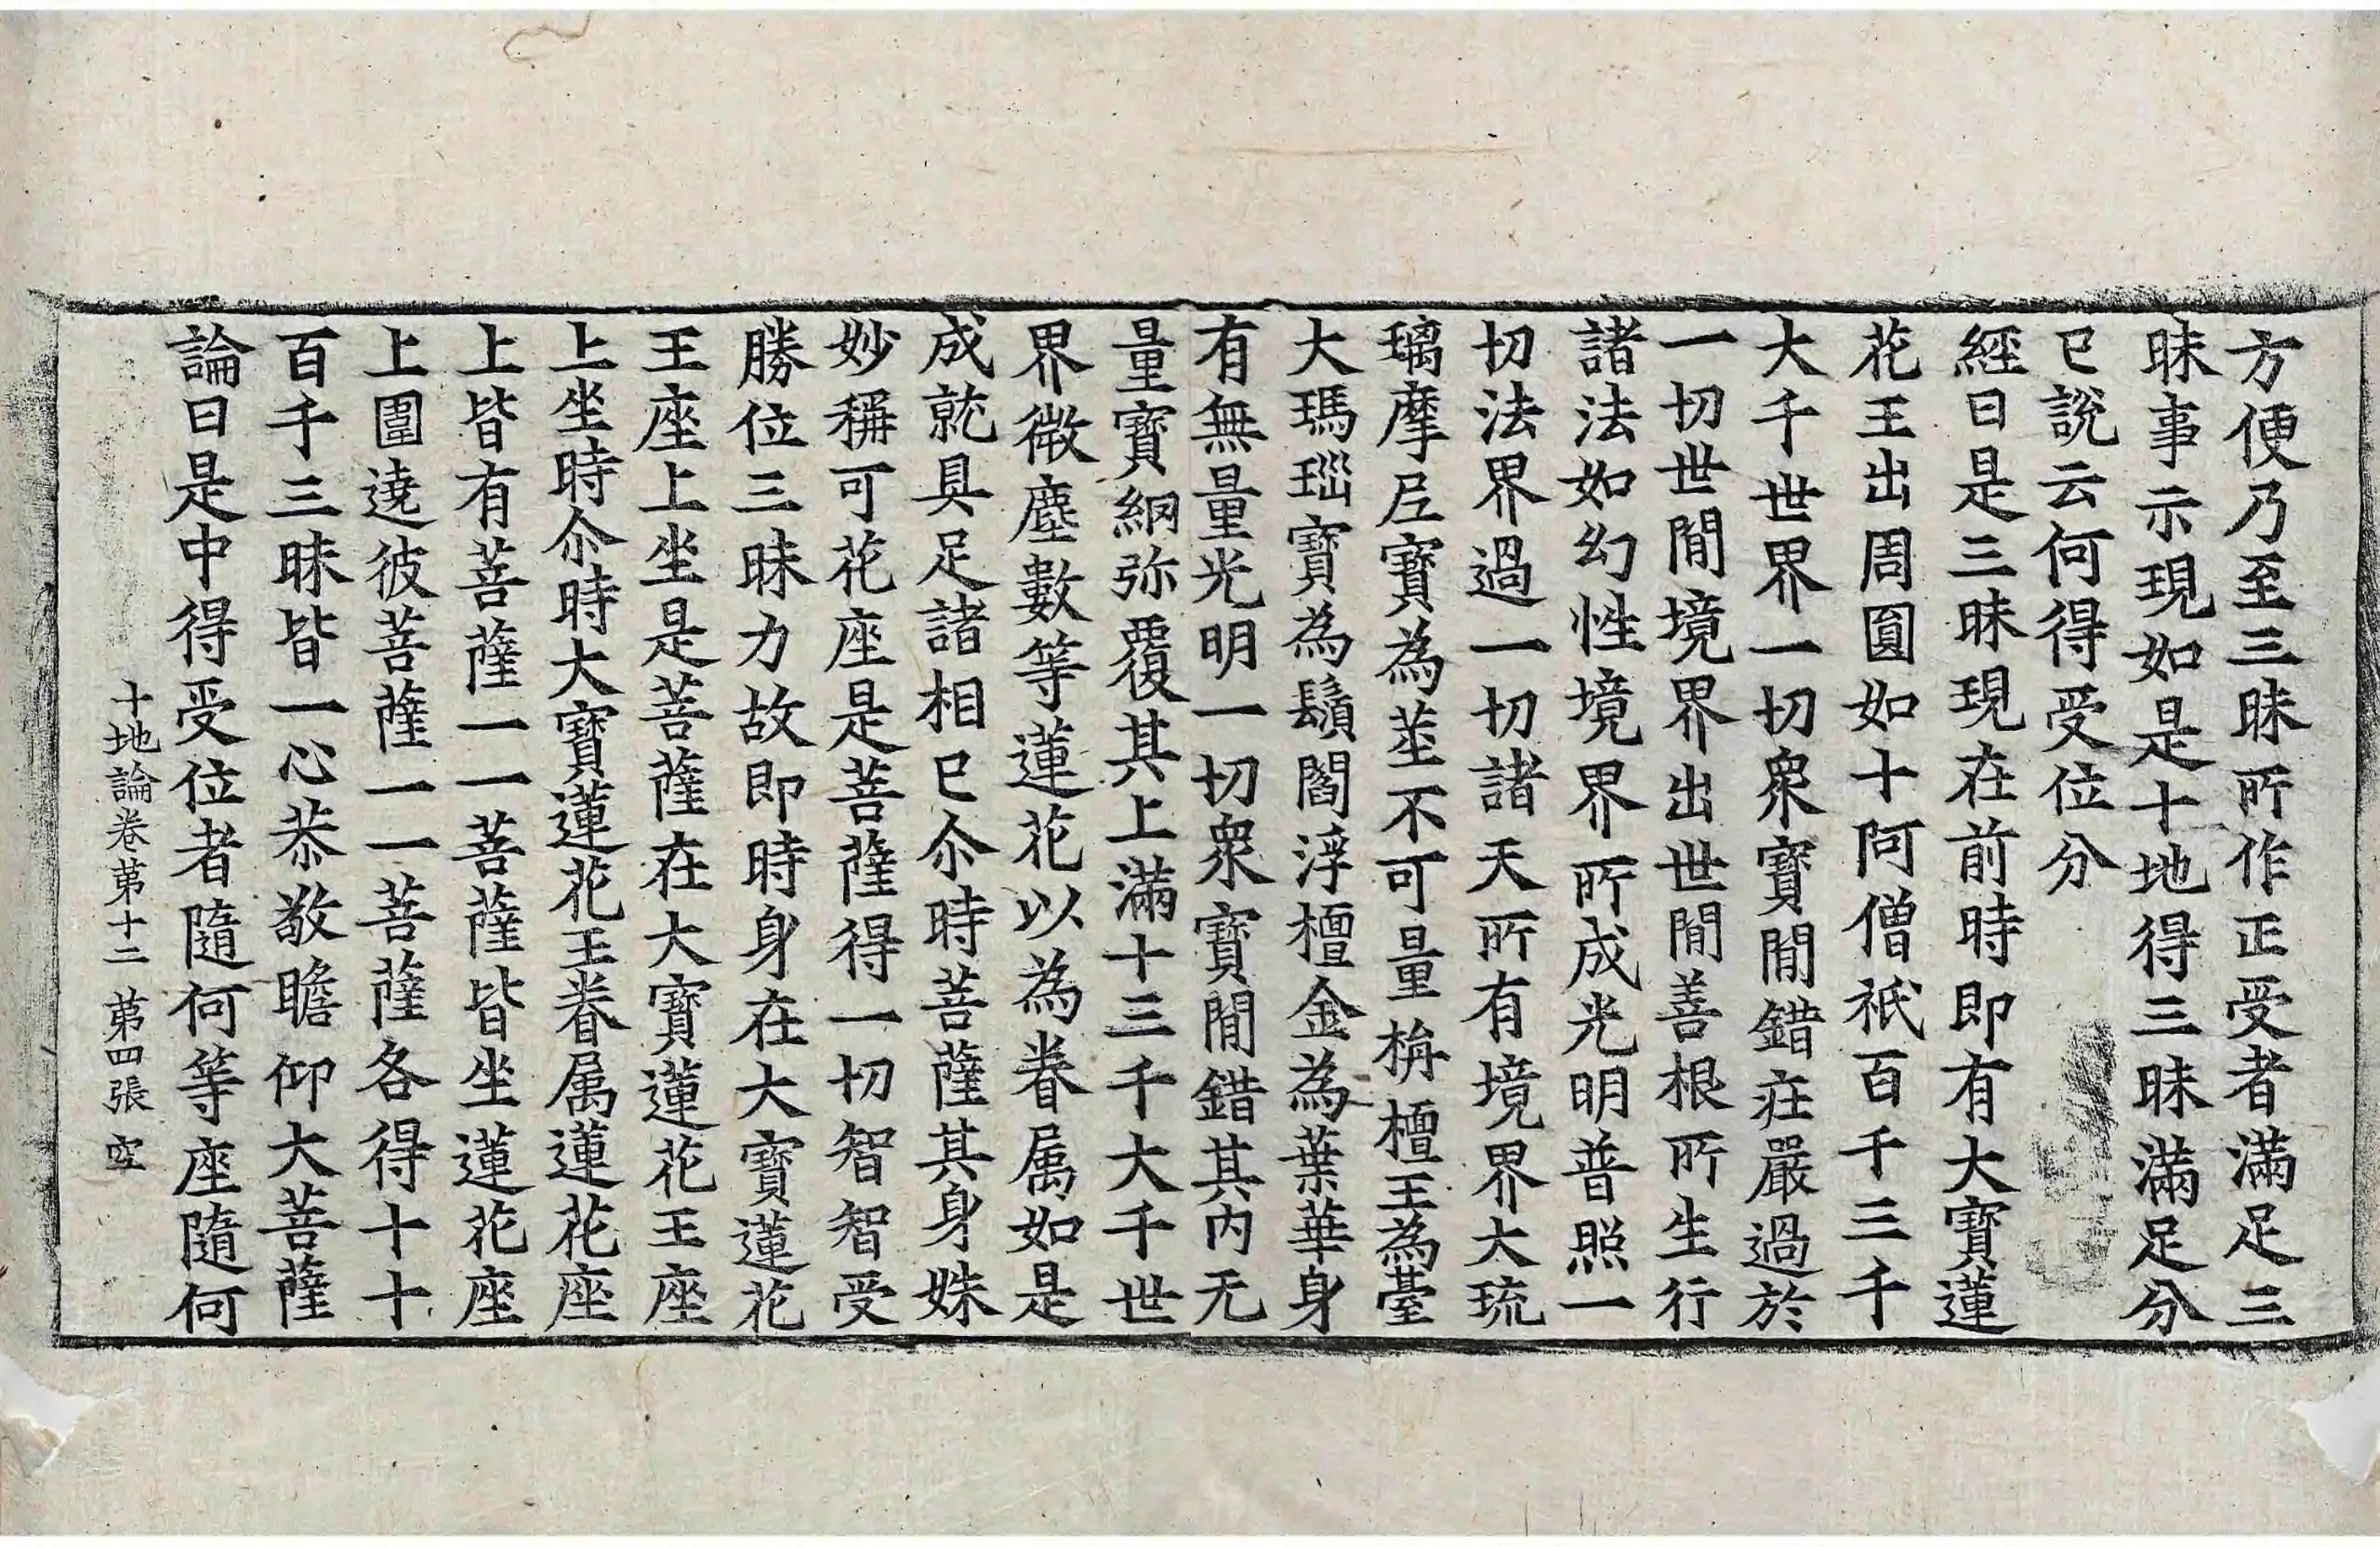 方便乃至三昧所作正受者滿足三
昧事示現如是十地得三昧滿足分
已說云何得受位分
經曰是三昧現在前時即有大寶蓮
花王出周圓如十阿僧祇百千三千
大千世界一切衆寶閒錯莊嚴過於
一切世閒境界出世閒善根所生行
諸法如幻性境界所成光明普照一
切法界過一切諸天所有境界大琉
璃摩尼寶為莖不可量栴檀王為臺
大瑪瑙寶為鬚閻浮檀金為葉華身
有無量光明一切衆寶閒錯其内无
量寶網弥覆其上滿十三千大千世
界微塵數等蓮花以為眷属如是
成就具足諸相已尒時菩薩其身姝
妙稱可花座是菩薩得一切智智受
勝位三昧力故即時身在大寶蓮花
王座上坐是菩薩在大寶蓮花王座
上坐時尒時大寶蓮花王眷属蓮花座
上皆有菩薩一一菩薩皆坐蓮花座
上圍遶彼菩薩一一菩薩各得十十
百千三昧皆一心恭敬瞻仰大菩薩
論曰是中得受位者隨何等座隨何
十地論卷第十二 第四張 空